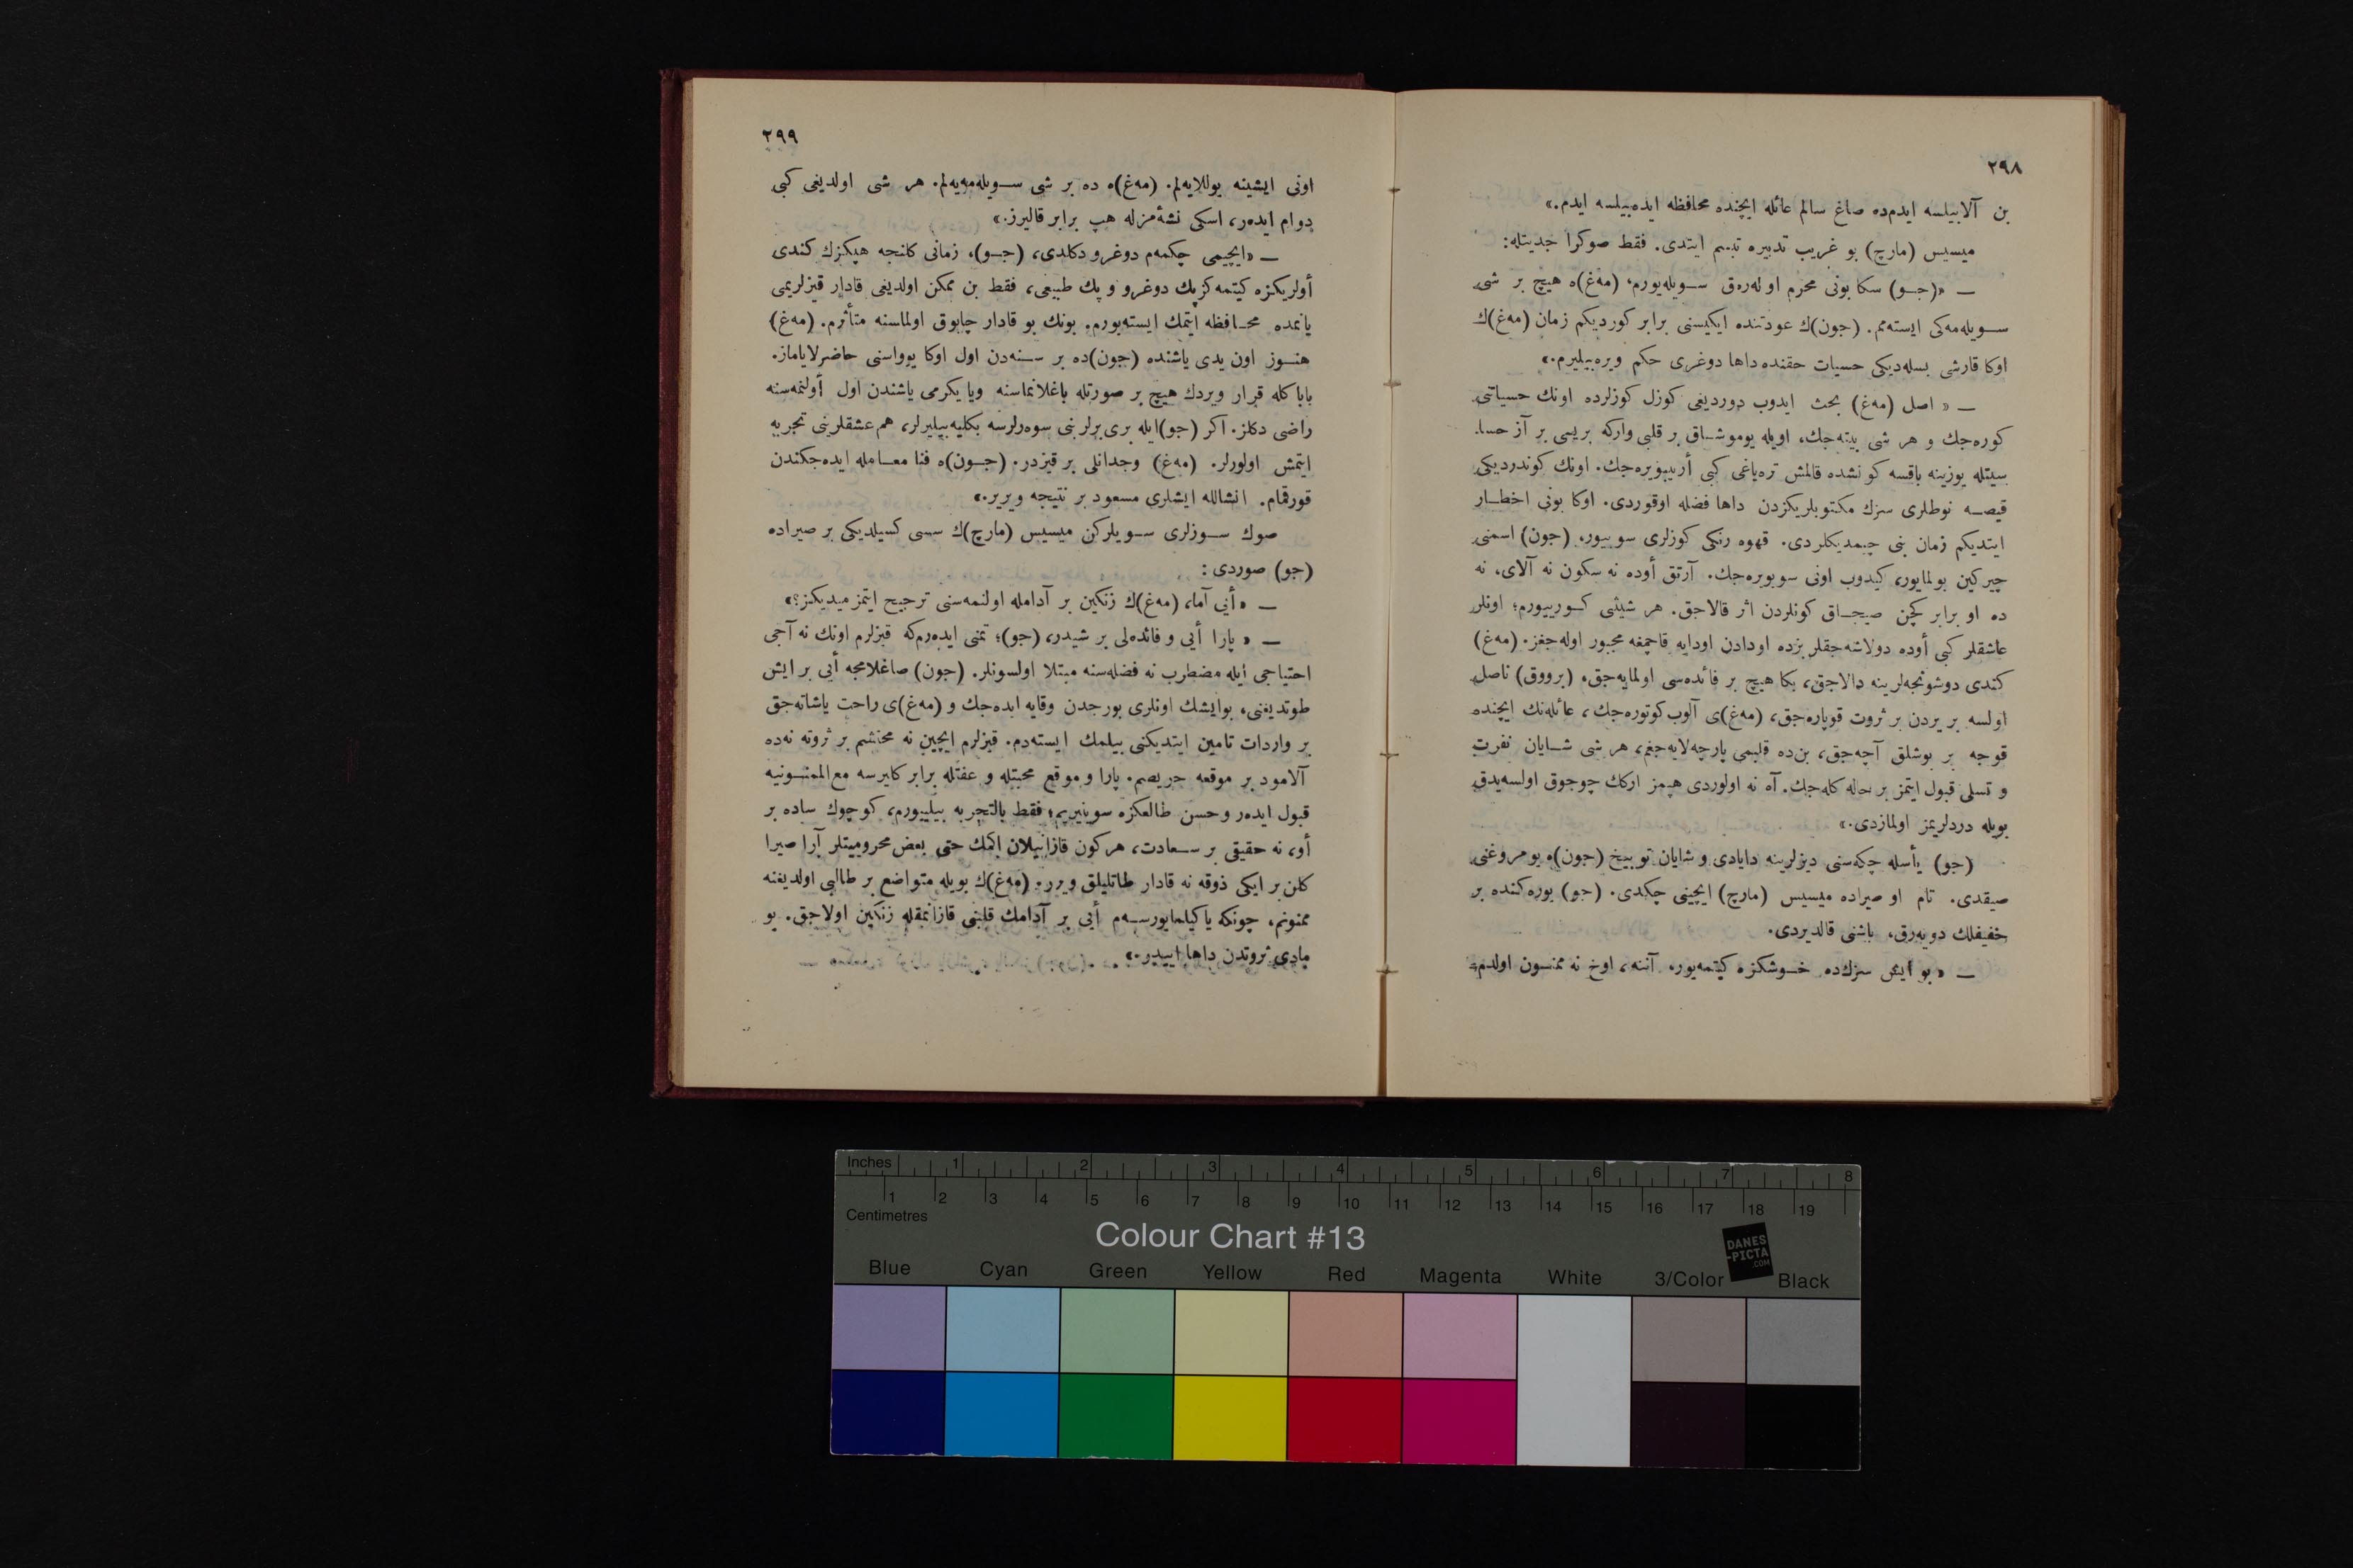 ٢٩٨
بن آلابیلسه ایدم‌ده صاغ سالم عائله ایچنده محافظه ایده‌بیلسه ایدم.»
میسیس (مارچ) بو غریب تدبیره تبسم ایتدی. فقط صوکرا جدیتله:
— «(جو) سکا بونی محرم اوله‌رق سویله‌یورم، (مه‌غ)ه هیچ بر شی
سویله‌مه‌کی ایسته‌مم. (جون)ك عودتنده ایکیسنی برابر کوردیکم زمان (مه‌غ)ك
اوکا قارشی بسله‌دیکی حسیات حقنده داها دوغری حکم ویره‌بیلیرم.»
— « اصل (مه‌غ) بحث ایدوب دوردیغی کوزل کوزلرده اونك حسیاتنی
کوره‌جك و هر شی بیته‌جك، اویله یوموشاق بر قلبی وارکه بریسی بر آز حسا-
سیتله یوزینه باقسه کونشده قالمش تره‌یاغی کبی أرییویره‌جك. اونك کوندردیکی
قیصه نوطلری سزك مکتوبلریکزدن داها فضله اوقوردی. اوکا بونی اخطار
ایتدیکم زمان بنی چیمدیکلردی. قهوه رنکی کوزلری سوییور، (جون) اسمنی
چیرکین بولمایور، کیدوب اونی سویویره‌جك. آرتق أوده نه سکون نه آلای، نه
ده او برابر کچن صیجاق کونلردن اثر قالاجق. هر شیئی کورییورم؛ اونلر
عاشقلر کبی أوده دولاشه‌جقلر بزده اودادن اودایه قاچمغه مجبور اوله‌جغز. (مه‌غ)
کندی دوشونجه‌لرینه دالاجق، بکا هیچ بر فائده‌سی اولمایه‌جق، (برووق) ناصل
اولسه بر یردن بر ثروت قوپاره‌جق، (مه‌غ)ی آلوب کوتوره‌جك، عائله‌نك ایچنده
قوجه بر بوشلق آچه‌جق، بن‌ده قلبمی پارچه‌لایه‌جغم، هر شی شایان نفرت
و تسلی قبول ایتمز بر حاله کله‌جك. آه نه اولوردی هپمز ارکك چوجوق اولسه‌یدق
بویله دردلریمز اولمازدی.»
(جو) یأسله چکه‌سنی دیزلرینه دایادی و شایان توبیخ (جون)ه یومروغنی
صیقدی. تام او صیراده میسیس (مارچ) ایچینی چکدی. (جو) یوره‌کنده بر
خفیفلك دویه‌رق، باشنی قالدیردی.
— « بو ایش سزك‌ده خوشکزه کیتمه‌یور، آننه، اوخ نه ممنون اولدم؛
٢٩٩
اونی ایشینه یوللایه‌لم. (مه‌غ)ه ده بر شی سویله‌مه‌یه‌لم. هر شی اولدیغی کبی
دوام ایدەر، اسکی نشۀ‌مزله هپ برابر قالیرز.»
— «ایچیمی چکمه‌م دوغرو دکلدی، (جو)، زمانی کلنجه هپکزك کندی
أولریکزه کیتمه‌کز پك دوغرو و پك طبیعی، فقط بن ممکن اولدیغی قادار قیزلریمی
یانمده محافظه ایتمك ایسته‌یورم. بونك بو قادار چابوق اولماسنه متأثرم. (مه‌غ)
هنوز اون یدی یاشنده (جون)ده بر سنه‌دن اول اوکا یوواسنی حاضرلایاماز.
باباکله قرار ویردك هیچ بر صورتله باغلانماسنه ویا یکرمی یاشندن اول أولنمه‌سنه
راضی دکلز. اکر (جو)ایله بری برلرینی سوه‌رلرسه بکلیه‌بیلیرلر، هم عشقلرینی تجربه
ایتمش اولورلر. (مه‌غ) وجدانلی بر قیزدر. (جون)ه فنا معامله ایده‌جکندن
قورقمام. انشالله ایشلری مسعود بر نتیجه ویریر.»
صوك سوزلری سویلرکن میسیس (مارچ)ك سسی کسیلدیکی بر صیراده
(جو) صوردی:
— « أیی آما، (مه‌غ)ك زنکین بر آدامله اولنمه‌سنی ترجیح ایتمز میدیکز؟»
— « پارا أیی و فائده‌لی بر شیدر، (جو)؛ تمنی ایده‌رم‌که قیزلرم اونك نه آجی
احتیاجی ایله مضطرب نه فضله‌سنه مبتلا اولسونلر. (جون) صاغلامجه أیی بر ایش
طوتدیغنی، بوایشك اونلری بورجدن وقایه ایده‌جك و (مه‌غ)ی راحت یاشاته‌جق
بر واردات تامین ایتدیکنی بیلمك ایسته‌دم. قیزلرم ایچین نه محتشم بر ثروته نه‌ده
آلامود بر موقعه حریصم. پارا و موقع محبتله و عفتله برابر کلیرسه مع‌الممنونیه
قبول ایده‌ر و حسن طالعکزه سوینیریم؛ فقط بالتجربه بیلییورم، کوچوك ساده بر
أو، نه حقیقی بر سعادت، هر کون قازانیلان اکمك حتی بعض محرومیتلر آرا صیرا
کلن بر ایکی ذوقه نه قادار طاتلیلق ویرر. (مه‌غ)ك بویله متواضع بر طالبی اولدیغنه
ممنونم، چونکه یاکیلمایورسه‌م أیی بر آدامك قلبنی قازانمقله زنکین اولاجق. بو
مادی ثروتدن داها اییدر.»
Inches 1 2 3 4 5 6 7 8
1 2 3 4 5 6 7 8 9 10 11 12 13 14 15 16 17 18 19
Centimetres
Colour Chart #13
DANES
-PICTA
.COM
Blue Cyan Green Yellow Red Magenta White 3/Color Black